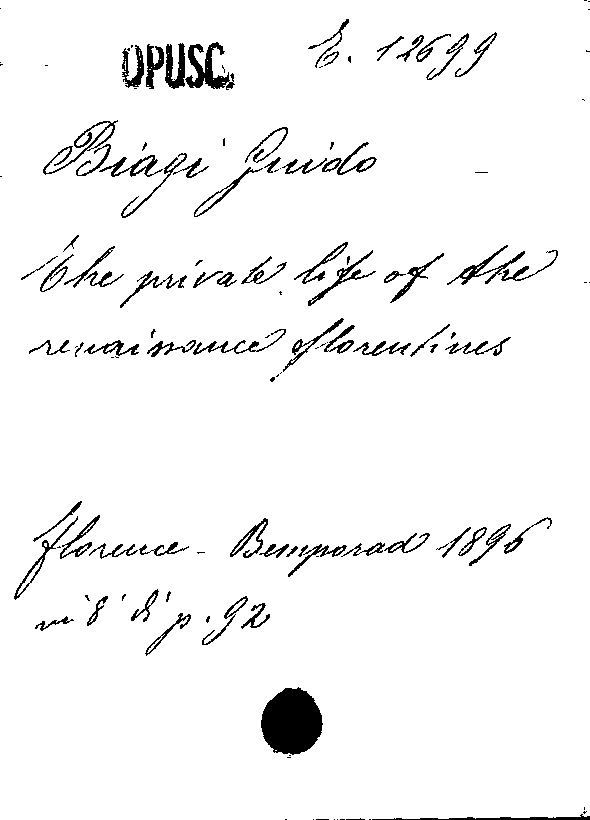 OPUSC. E. 12699
Biagi Guido
The private life of the
renaissance florentines
florence - Bemporad 1896
in 8° di p. 92